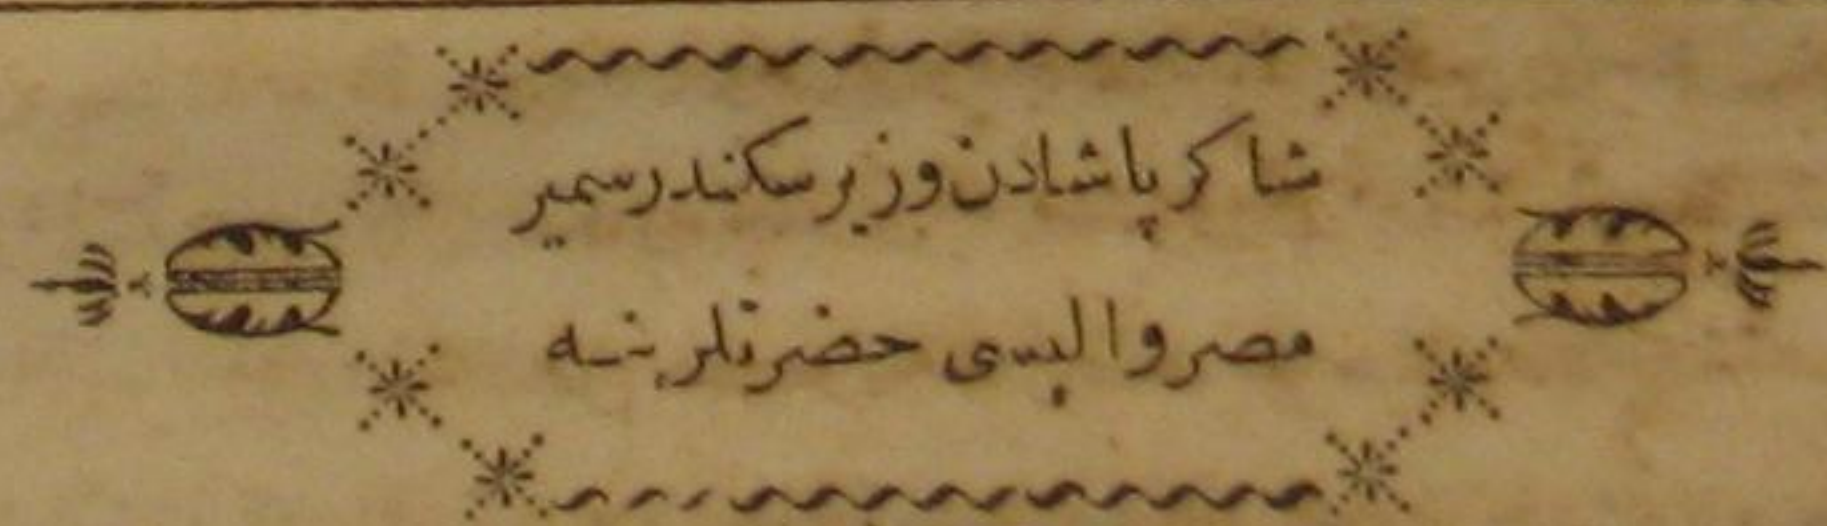 شاكر پاشادن وزير سكندر سمير
مصر واليسی حضرتلرينه